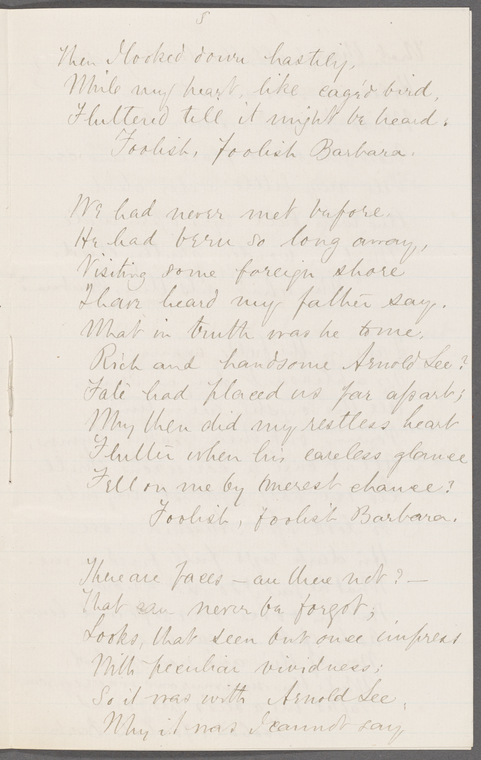 5
Then I looked down hastily,
While my heart, like caged bird,
Fluttered till it might be heard:
Foolish, foolish Barbara.
We had never met before
He had been so long away,
Visiting some foreign shore
I have heard my father say.
What in truth was he to me,
Rich and handsome Arnold Lee?
Fate had placed us far apart;
Why then did my restless heart
Flutter when his careless glance
Fell on me by merest chance?
Foolish, foolish Barbara.
There are faces — are there not? —
That can never be forgot;
Looks, that seen but once impress
With peculiar vividness;
So it was with Arnold Lee,
Why it was I cannot say